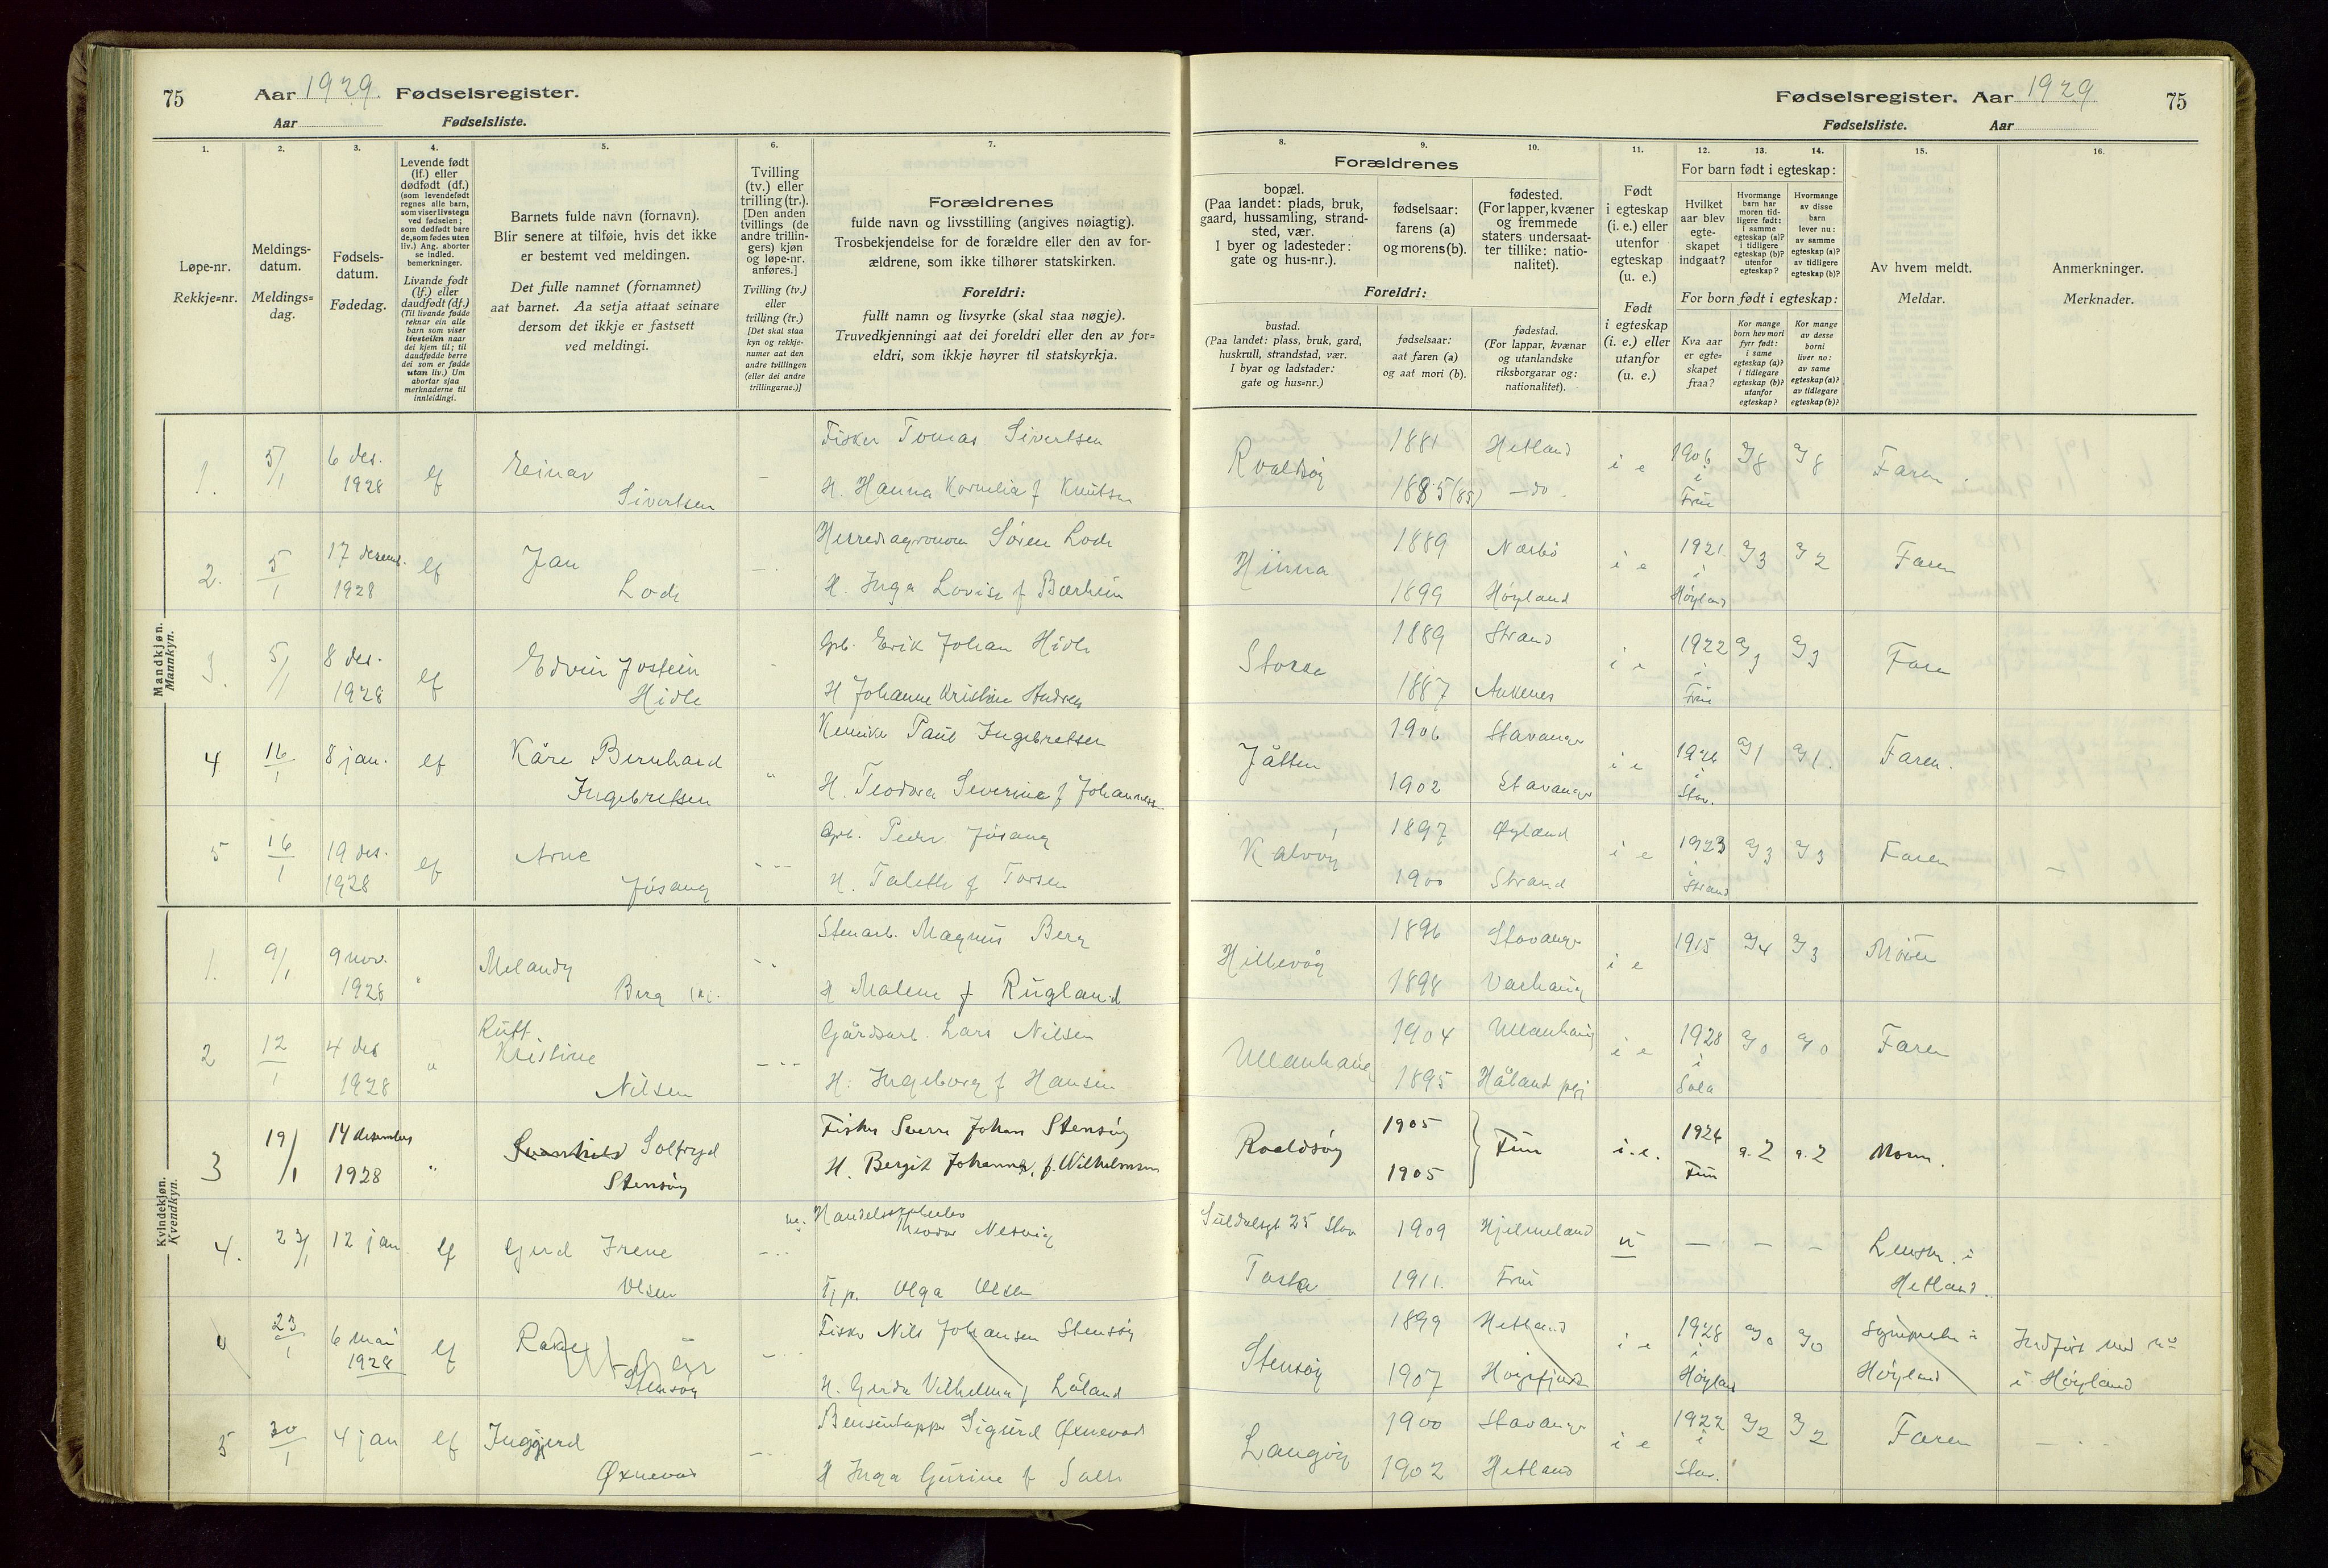 75 Aar 1929. Fødselsregister.
Aar Fødselsliste.
Fødselsregister. Aar 1929 75
Fødselsliste. Aar
1.
Løpe-nr.
Rekkje=nr.
2.
Meldings-
datum.
Meldings=
dag.
3.
Fødsels-
datum.
Fødedag.
4.
Levende født
(lf.) eller
dødfødt (df.)
(som levendefødt
regnes alle barn,
som viser livstegn
ved fødselen;
som dødfødt bare
de, som fødes uten
liv.) Ang. aborter
se indled.
bemerkninger.
Livande født
(lf.) eller
daudfødt (df.)
(Til livande fødde
reknar ein alle
barn som viser
livsteikn naar
dei kjem til; til
daudfødde berre
dei som er fødde
utan liv.) Um
abortar sjaa
merknaderne til
innleidingi.
5.
Barnets fulde navn (fornavn).
Blir senere at tilføie, hvis det ikke
er bestemt ved meldingen.
Det fulle namnet (fornamnet)
aat barnet. Aa setja attaat seinare
dersom det ikkje er fastsett
ved meldingi.
6.
Tvilling
(tv.) eller
trilling (tr.).
[Den anden
tvillings (de
andre trillin-
gers) kjøn
og løpe-nr.
anføres.]
Tvilling (tv.)
eller
trilling (tr.)
[Det skal staa
kyn og rekkje-
numer aat den
andre tvillingen
(eller dei andre
trillingarne.)]
7.
Forældrenes
fulde navn og livsstilling (angives nøiagtig).
Trosbekjendelse for de forældre eller den av for-
ældrene, som ikke tilhører statskirken.
Foreldri:
fullt namn og livsyrke (skal staa nøgje).
Truvedkjenningi aat dei foreldri eller den av for=
eldri, som ikkje høyrer til statskyrkja.
8. 9. 10.
Forældrenes
bopæl.
(Paa landet: plads, bruk,
gaard, hussamling, strand-
sted, vær.
I byer og ladesteder:
gate og hus-nr.).
fødselsaar:
farens (a)
og morens (b).
fødested.
(For lapper, kvæner
og fremmede
staters undersaat-
ter tillike: natio-
nalitet).
Foreldri:
bustad.
(Paa landet: plass, bruk, gard,
huskrull, strandstad, vær.
I byar og ladstader:
gate og hus=nr.)
fødselsaar:
aat faren (a)
og aat mori (b).
fødestad.
(For lappar, kvænar
og utanlandske
riksborgarar og:
nationalitet).
11.
Født
i egteskap
(i. e.) eller
utenfor
egteskap
(u. e.)
Født
i egteskap
(i. e.) eller
utanfor
(u. e.)
12. 13. 14.
For barn født i egteskap:
Hvilket
aar blev
egte-
skapet
indgaat?
Hvormange
barn har
moren tid-
ligere født:
i samme
egteskap (a)?
i tidligere
egteskap (b)?
utenfor
egteskap?
Hvormange
av disse
barn
lever nu:
av samme
egteskap (a)?
av tidligere
egteskap (b)?
For born født i egteskap:
Kva aar
er egte=
skapet
fraa?
Kor mange
born hev mori
fyrr født:
i same
egteskap (a)?
i tidlegare
egteskap (b)?
utanfor
egteskap?
Kor mange
av desse
borni
liver no:
av same
egteskap (a)?
av tidlegare
egteskap (b)?
15.
Av hvem meldt.
Meldar.
16.
Anmerkninger.
Merknader.
Mandkjøn.
Mannkyn.
1. 5/1 6 des. 1928 lf Einar Sivertsen
Fisker Tomas Sivertsen
H. Hanna Kornelia f Knutsen
1881 Hetland
1885 (85) – do.
i e 1906 i Frue g/8 g/8 Faren.
2. 5/1 17 desemb. 1928 lf Jan Lode
Herredsagronom Sören Lode
H. Inga Lovise f Bærheim
Hinna 1889 Nærbö
1899 Höyland
i e 1921. i Höyland g/3 g/2 Faren
3. 5/1 8 des. 1928 lf Edvin Jostein Hidle
Erik Johan Hidle
H Johanne Kristine Andrea
1889 Strand
1887 Ankenes
i e 1922 i Frue g/3 g/3 Faren
4 16/1 8 jan. lf Kåre Bernhard Ingebretsen
Paul Ingebretsen
H. Teodora Severine f Johannesen
Jåtten 1906 Stavanger
1902 Stavanger
i e 1926 i Stav. g/1 g/1. Faren.
5 16/1 19 des. 1928 lf Arne Jösang
Peder Jösang
H. Taletta f Torsen
Kalvöy 1897 Öyland
1900 Strand
i e 1923 i Strand g/3 g/3 Faren —
Kvindekjøn.
Kvendkyn.
1. 9/1 9 nov. 1928 " Melandy Berg
Stenarb. Magnus Berg
H Malene f Rugland
Hillevåg 1896 Stavanger
1898 Varhaug
i e 1915 g/4 g/3 Moren
2 12/1 4 des 1928 " Rutt Kristine Nilsen
Gårdsarb. Lars Nilsen
H. Ingeborg f Hansen
Ullenhaug 1904 Ullenhaug
1895 Håland pgj
i e 1928 i Sola g/0 g/0 Faren
3 19/1 14 desember 1928 " Svanhild Solfryd Stensöy
Fisker Sverre Johan Stensöy
H. Bergit Johanna, f. Wilhelmsen
Roaldsöy 1905
1905 } Frue
i. e. 1926 Frue a. 2 a. 2 Moren.
4. 23/1 12 jan lf Gerd Irene Olsen
ug. Handelsskoleelev Theodor Nesvig
Tjp. Olga Olsen
Suldalsgt 25 Stav 1909 Hjelmeland
Tasta 1911. Frue
u — — — Lensm. i Hetland.
23/1 6 mai 1928 lf Rakel Stensöy
Fisker Nils Johansen Stensöy
H. Gerda Vilhelma f Låland
Stensöy 1899 Hetland
1907 Högsfjord
i e 1928 i Höyland g/0 g/0 Sogneprest i Höyland
i Höyland
5 30/1 4 jan lf Inggjerd Øxnevad
Bensintapper Sigurd Øxnevad
H Inga Gurine f Salte
Langöy 1900 Stavanger
1902 Hetland
i e 1922 i Stav. g/2 g/2 Faren